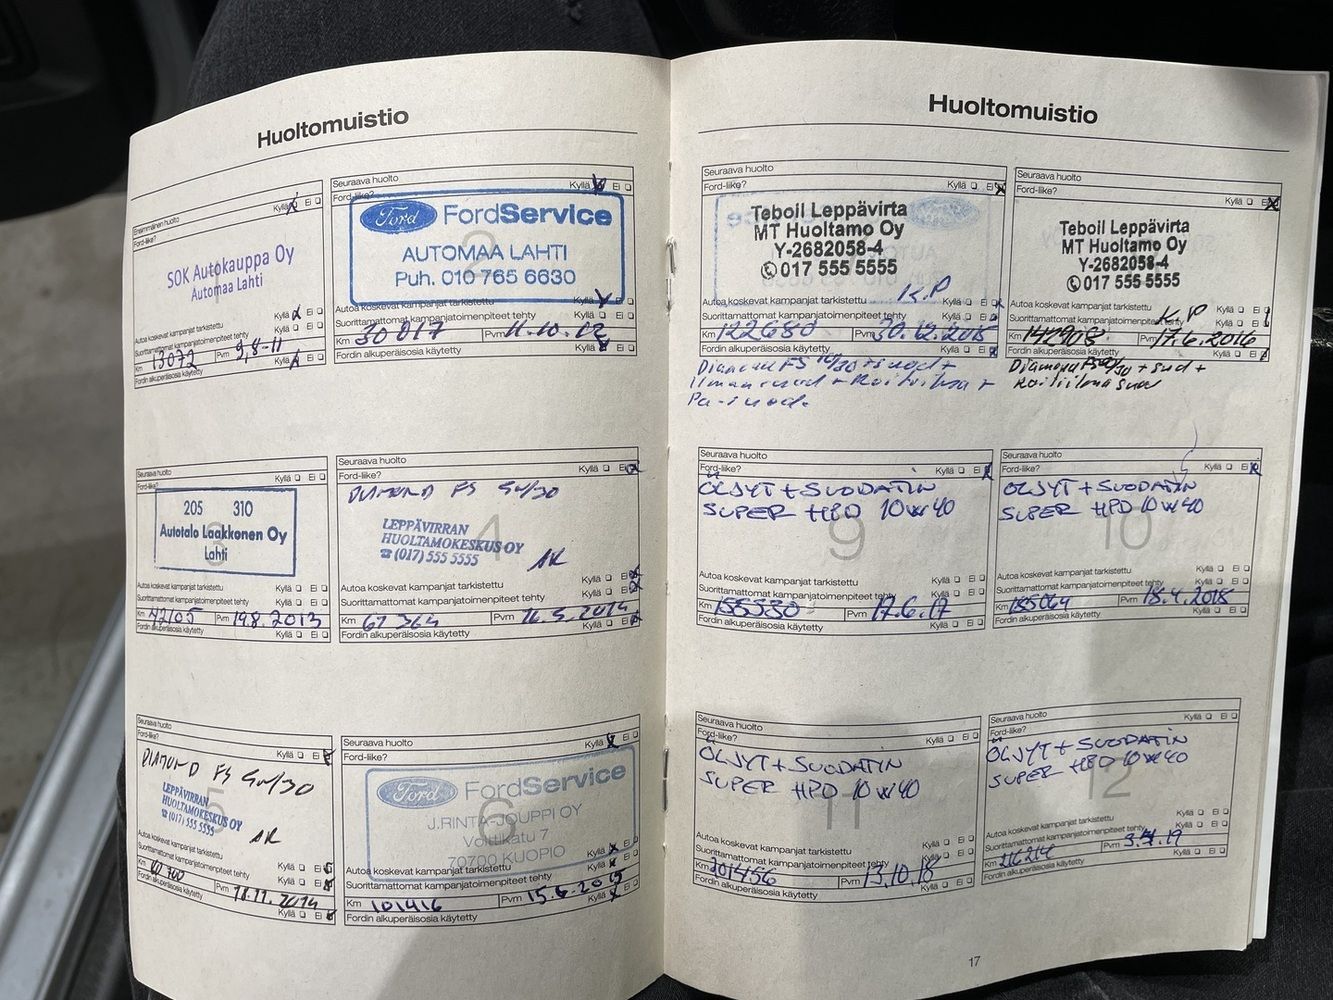 Huoltomuistio
Ensimmäinen huolto
Ford-liike?
Kyllä Ei
SOK Autokauppa Oy
Automaa Lahti
1
Autoa koskevat kampanjat tarkistettu
Kyllä Ei
Suorittamattomat kampanjatoimenpiteet tehty
Kyllä Ei
Km 13072 Pvm 9,8-11
Fordin alkuperäisosia käytetty
Kyllä Ei
Seuraava huolto
Ford-liike?
Kyllä Ei
Ford FordService
2
AUTOMAA LAHTI
Puh. 010 765 6630
Autoa koskevat kampanjat tarkistettu
Kyllä Ei
Suorittamattomat kampanjatoimenpiteet tehty
Km 30 017 Pvm 11.10.12
Fordin alkuperäisosia käytetty
Kyllä Ei
Seuraava huolto
Ford-liike?
Kyllä Ei
205 310
Autotalo Laakkonen Oy
Lahti
3
Autoa koskevat kampanjat tarkistettu
Kyllä Ei
Suorittamattomat kampanjatoimenpiteet tehty
Kyllä Ei
Km 42105 Pvm 19.8.2013
Fordin alkuperäisosia käytetty
Kyllä Ei
Seuraava huolto
Ford-liike?
Kyllä Ei
DIAMOND FS 5w/30
4
LEPPÄVIRRAN
HUOLTAMOKESKUS OY
☎ (017) 555 5555
Autoa koskevat kampanjat tarkistettu
Kyllä Ei
Suorittamattomat kampanjatoimenpiteet tehty
Kyllä Ei
Km 67 364 Pvm 16.5.2014
Fordin alkuperäisosia käytetty
Kyllä Ei
Seuraava huolto
Ford-liike?
Kyllä Ei
DIAMOND FS 5w/30
5
LEPPÄVIRRAN
HUOLTAMOKESKUS OY
☎ (017) 555 5555
Autoa koskevat kampanjat tarkistettu
Kyllä Ei
Suorittamattomat kampanjatoimenpiteet tehty
Kyllä Ei
Km Pvm 11.2014
Fordin alkuperäisosia käytetty
Kyllä Ei
Seuraava huolto
Ford-liike?
Kyllä Ei
Ford FordService
6
J.RINTA-JOUPPI OY
Volttikatu 7
70700 KUOPIO
Autoa koskevat kampanjat tarkistettu
Kyllä Ei
Suorittamattomat kampanjatoimenpiteet tehty
Kyllä Ei
Km 101416 Pvm 15.6.2015
Fordin alkuperäisosia käytetty
Kyllä Ei
Huoltomuistio
Seuraava huolto
Ford-liike?
Kyllä Ei
Teboil Leppävirta
MT Huoltamo Oy
Y-2682058-4
✆ 017 555 5555
Autoa koskevat kampanjat tarkistettu
K.P
Suorittamattomat kampanjatoimenpiteet tehty
Km 122680 Pvm 30.12.2015
Fordin alkuperäisosia käytetty
Kyllä Ei
Diamond FS 10/30 + suod +
ilmansuod + Raitisilma +
Pa-suod.
Seuraava huolto
Ford-liike?
Kyllä Ei
Teboil Leppävirta
MT Huoltamo Oy
Y-2682058-4
✆ 017 555 5555
Autoa koskevat kampanjat tarkistettu
K.P
Suorittamattomat kampanjatoimenpiteet tehty
Km 142908 Pvm 17.6.2016
Fordin alkuperäisosia käytetty
Kyllä Ei
Diamond FS + suod +
Seuraava huolto
Ford-liike?
Kyllä Ei
ÖLJYT + SUODATIN
SUPER HPD 10W40
9
Autoa koskevat kampanjat tarkistettu
Kyllä Ei
Suorittamattomat kampanjatoimenpiteet tehty
Kyllä Ei
Km 155530 Pvm 17.6.17
Fordin alkuperäisosia käytetty
Kyllä Ei
Seuraava huolto
Ford-liike?
Kyllä Ei
ÖLJYT + SUODATIN
SUPER HPD 10W40
10
Autoa koskevat kampanjat tarkistettu
Kyllä Ei
Suorittamattomat kampanjatoimenpiteet tehty
Km 185064 Pvm 18.4.2018
Fordin alkuperäisosia käytetty
Kyllä Ei
Seuraava huolto
Ford-liike?
Kyllä Ei
ÖLJYT + SUODATIN
SUPER HPD 10W40
11
Autoa koskevat kampanjat tarkistettu
Kyllä Ei
Suorittamattomat kampanjatoimenpiteet tehty
Kyllä Ei
Km 201456 Pvm 13.10.18
Fordin alkuperäisosia käytetty
Kyllä Ei
Seuraava huolto
Ford-liike?
Kyllä Ei
ÖLJYT + SUODATIN
SUPER HPD 10W40
12
Autoa koskevat kampanjat tarkistettu
Kyllä Ei
Suorittamattomat kampanjatoimenpiteet tehty
Kyllä Ei
Km 216214 Pvm
Fordin alkuperäisosia käytetty
Kyllä Ei
17